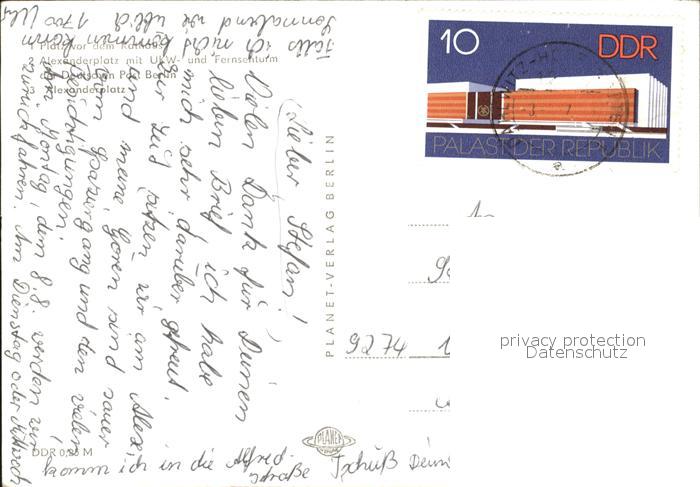 1 Platz vor dem Rathaus
2 Alexanderplatz mit UKW- und Fernsehturm
der Deutschen Post Berlin
3 Alexanderplatz
Lieber Stefan!
Vielen Dank für Deinen
lieben Brief, ich habe
mich sehr darüber gefreut.
Zur Zeit sitzen wir am Alex
und meine Gören sind sauer
vom Spaziergang und den vielen
Besichtigungen.
Am Montag, dem 8.8. werden wir
zurück fahren. Am Dienstag oder Mittwoch
komm ich in die Alfred-
straße
Falls ich nicht kommen kann
Sonnabend wie üblich 1700 Uhr
Tschüß Deine
PLANET-VERLAG BERLIN
PLANET
DDR 0,25 M
10
DDR
PALAST DER REPUBLIK
9274
privacy protection
Datenschutz